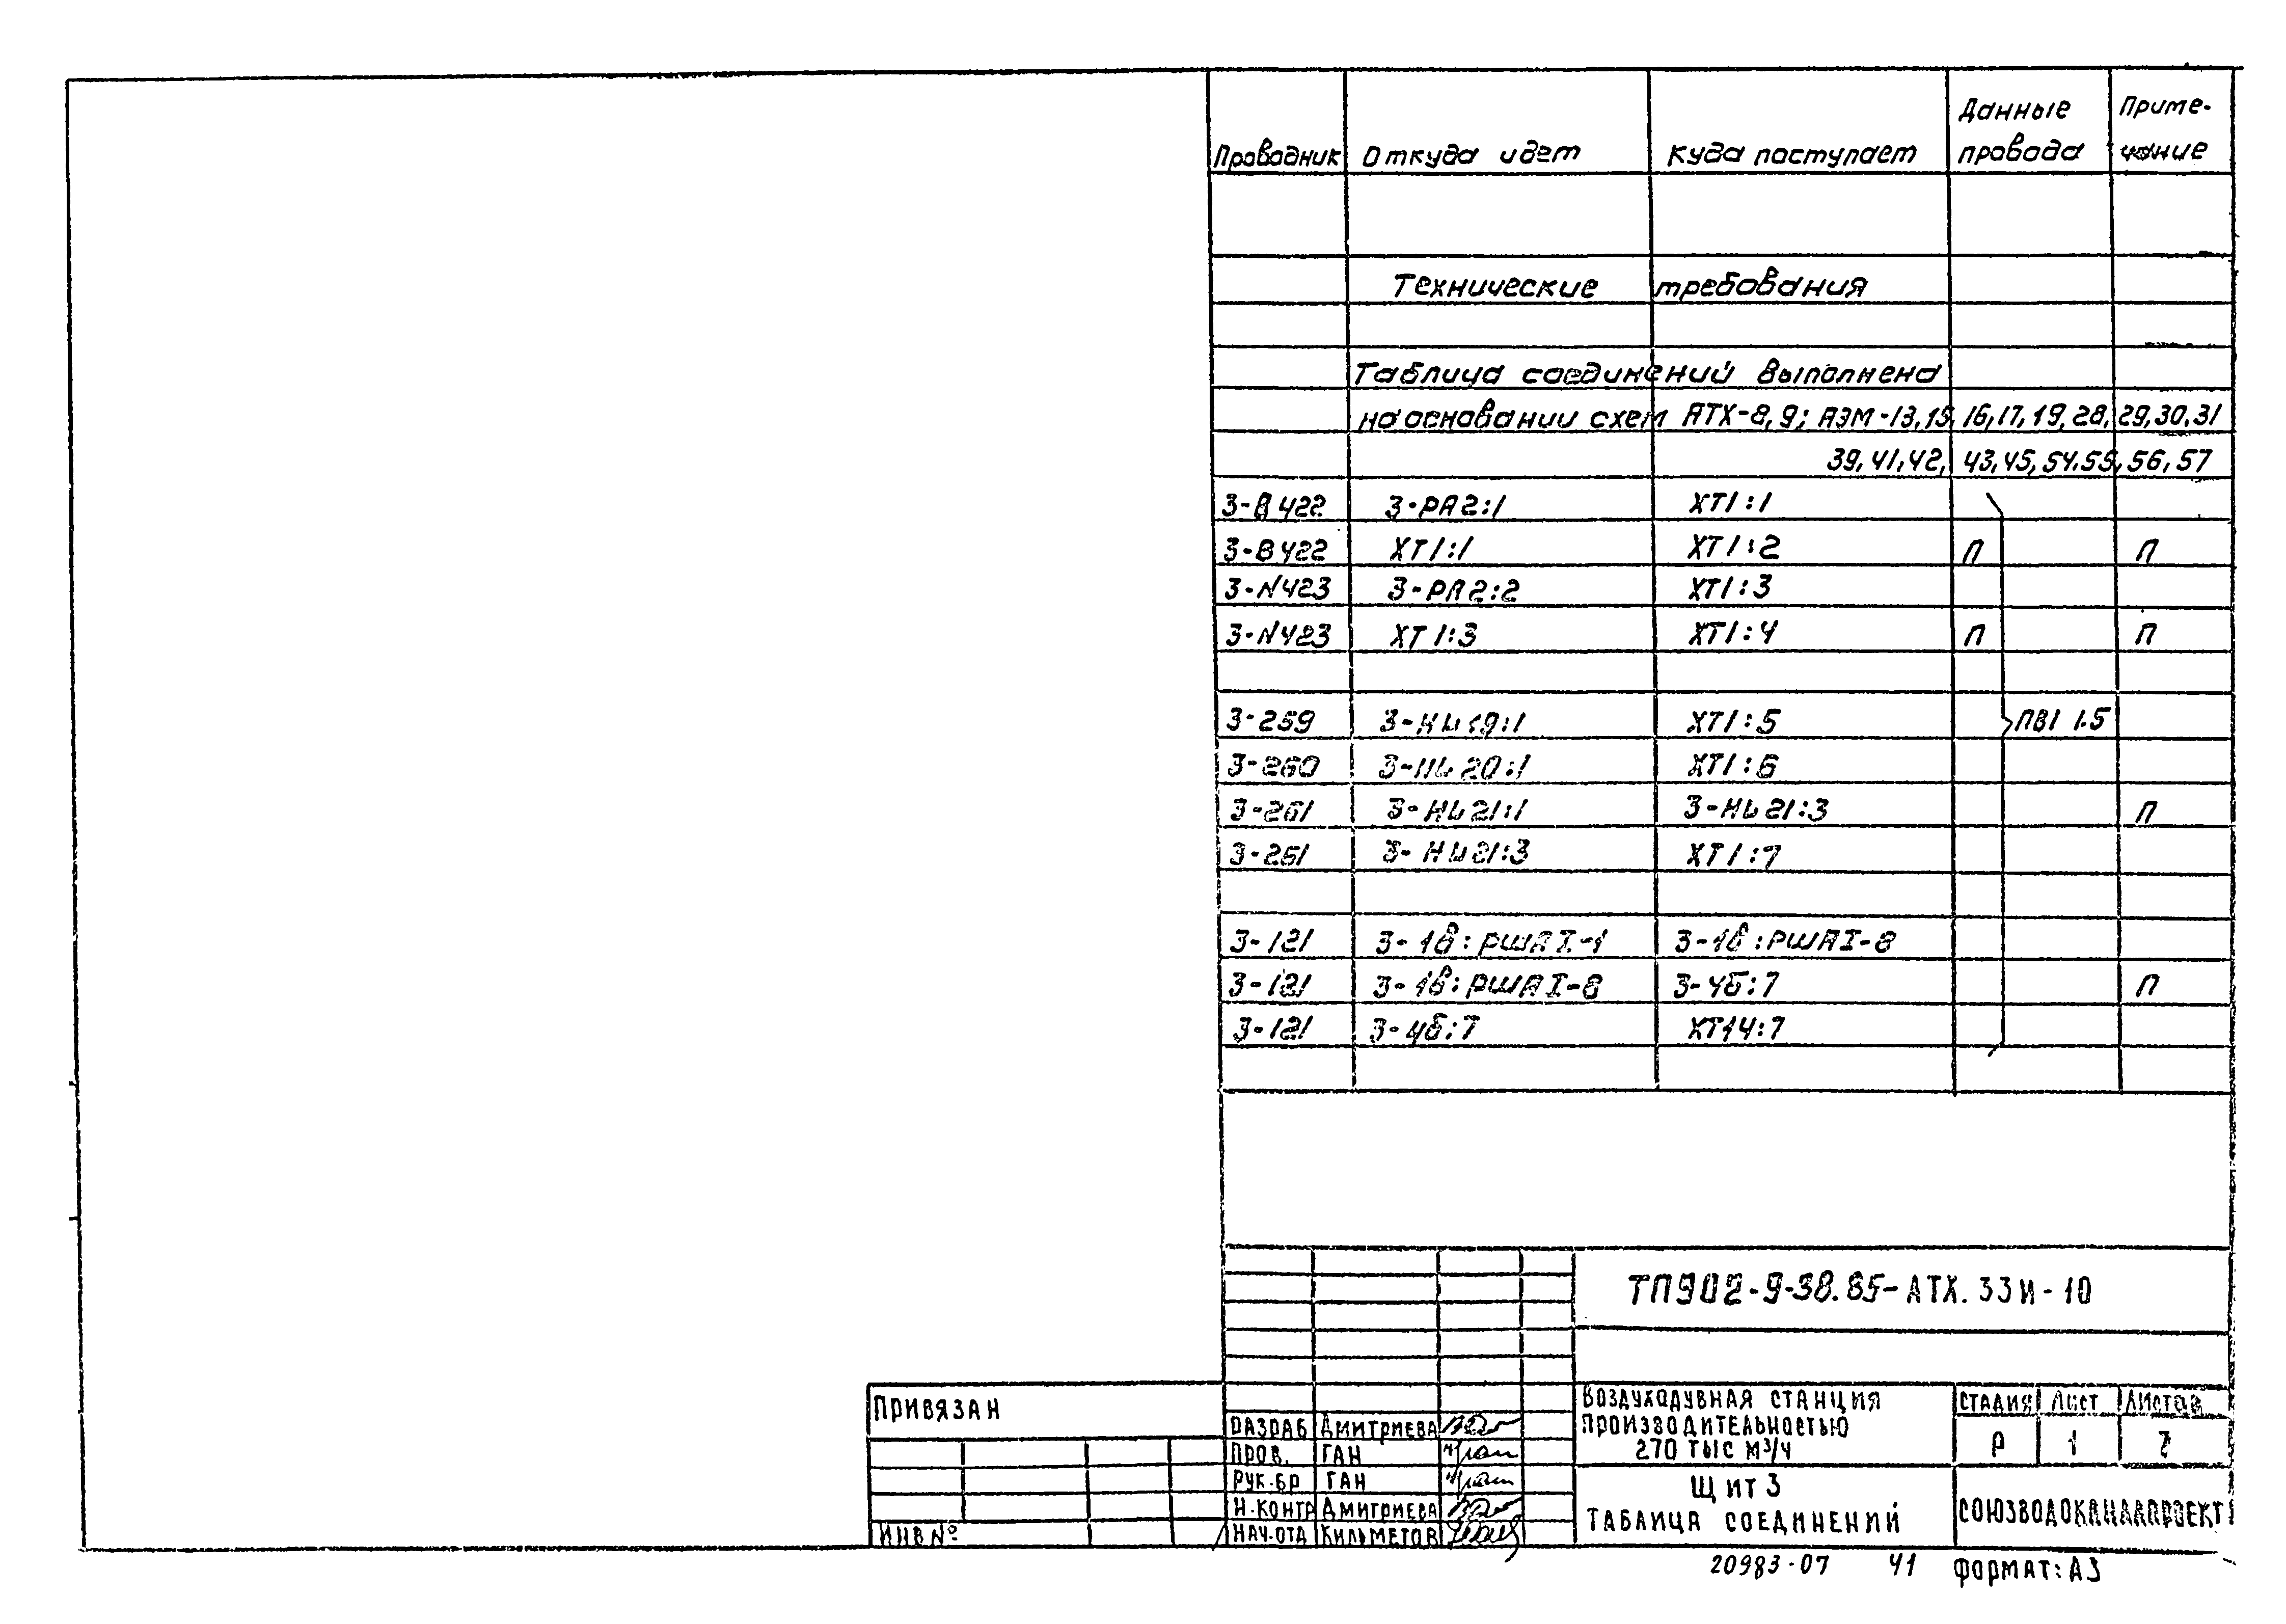 Проводник Откуда идет Куда поступает Данные провода Приме-чание
Технические требования
Таблица соединений выполнена
на основании схем АТХ-8,9; АЭМ-13,15,16,17,19,28,29,30,31
39,41,42,43,45,54,55,56,57
3-В422 3-РА2:1 ХТ1:1
3-В422 ХТ1:1 ХТ1:2 П П
3-N423 3-РА2:2 ХТ1:3
3-N423 ХТ1:3 ХТ1:4 П П
3-259 3-HL19:1 ХТ1:5 ПВ1 1.5
3-260 3-HL20:1 ХТ1:6
3-261 3-HL21:1 3-HL21:3 П
3-261 3-HL21:3 ХТ1:7
3-121 3-1в:РШАI-1 3-1в:РШАI-8
3-121 3-1в:РШАI-8 3-4б:7 П
3-121 3-4б:7 ХТ14:7
ТП902-9-38.85-АТХ.33И-10
ПРИВЯЗАН
ИНВ№
РАЗРАБ ДМИТРИЕВА
ПРОВ. ГАН
РУК.БР ГАН
Н.КОНТР ДМИТРИЕВА
НАЧ.ОТД КИЛЬМЕТОВ
ВОЗДУХОДУВНАЯ СТАНЦИЯ
ПРОИЗВОДИТЕЛЬНОСТЬЮ
270 ТЫС М³/Ч
СТАДИЯ ЛИСТ ЛИСТОВ
Р 1 7
ЩИТ 3
ТАБЛИЦА СОЕДИНЕНИЙ
СОЮЗВОДОКАНАЛПРОЕКТ
20983-07 41 ФОРМАТ: А3